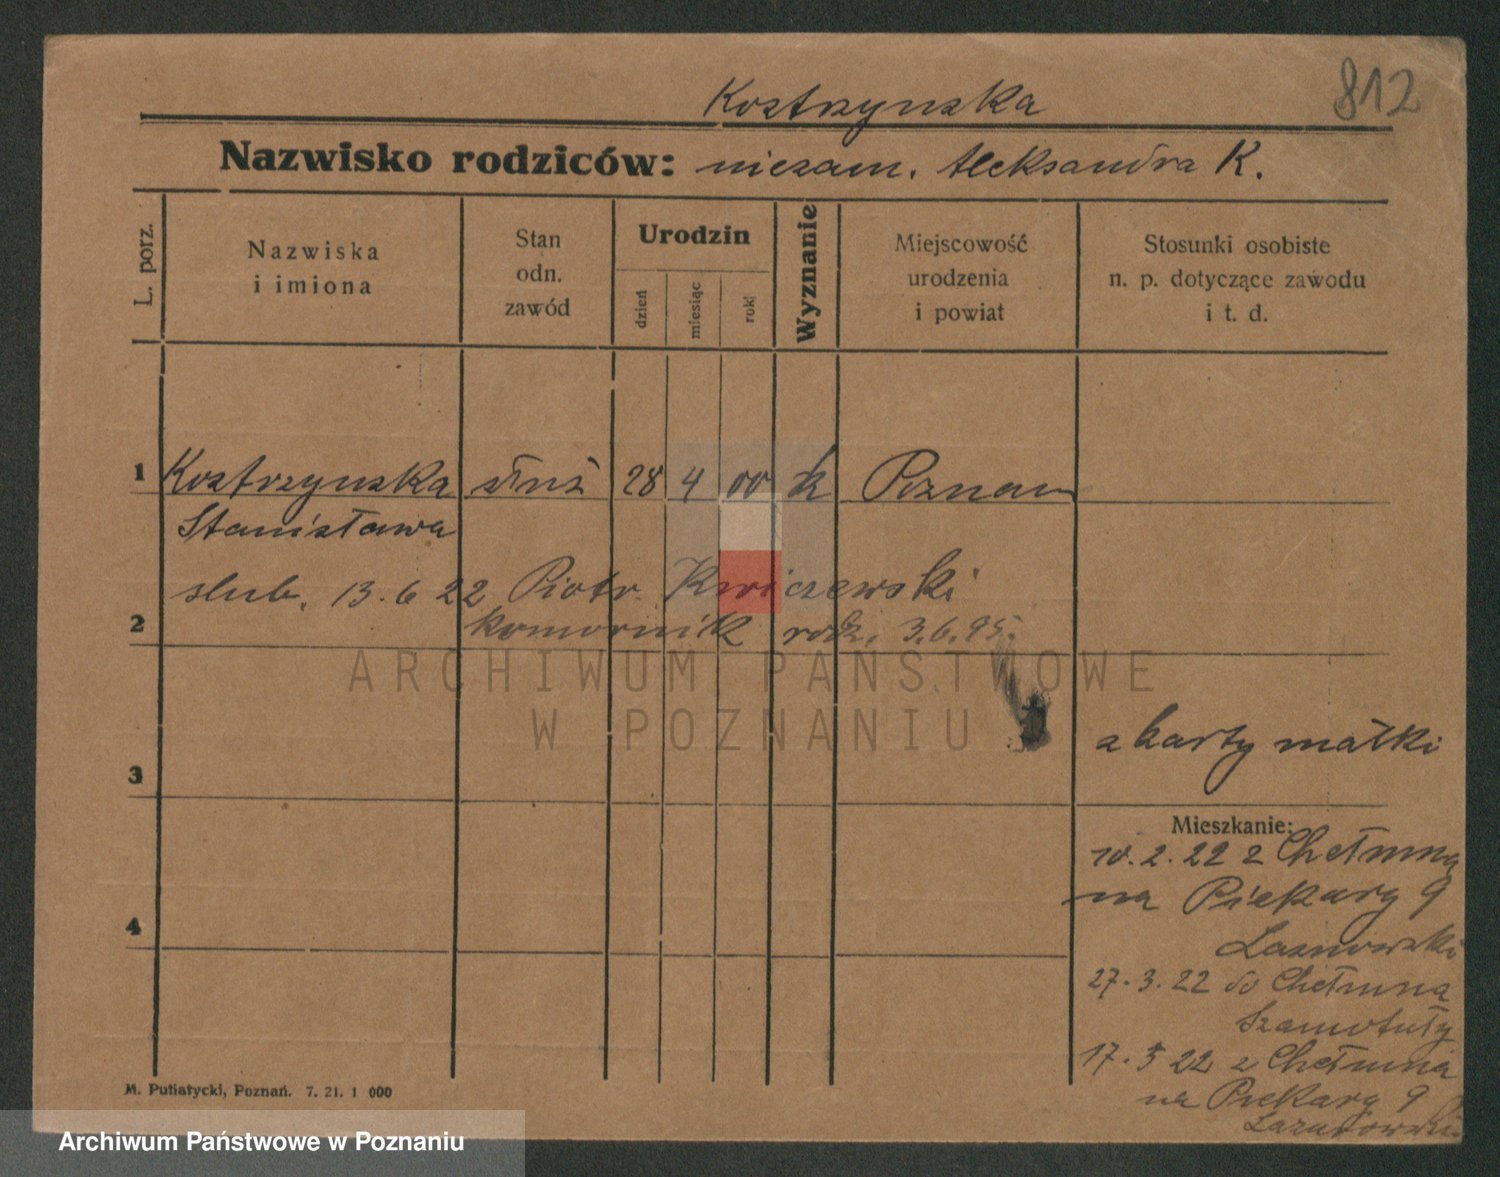 812
Kostrzynska
Nazwisko rodziców: niezam. Aleksandra K.
L. porz.
Nazwiska
i imiona
Stan
odn.
zawód
Urodzin
dzień
miesiąc
rok
Wyznanie
Miejscowość
urodzenia
i powiat
Stosunki osobiste
n. p. dotyczące zawodu
i t. d.
1 Kostrzynska służ 28 4 00 k Poznan
Stanisława
slub. 13.6 22 Piotr Kwiczewski
2 komornik rodz. 3.6.95.
ARCHIWUM PAŃSTWOWE
W POZNANIU
z karty matki
3
Mieszkanie:
10.2.22 z Chełmna
na Piekary 9
4
27.3.22 do Chełmna
Szamotuły
17.5 22 z Chełmna
na Piekary 9
M. Putiatycki, Poznań. 7. 21. 1 000
Archiwum Państwowe w Poznaniu